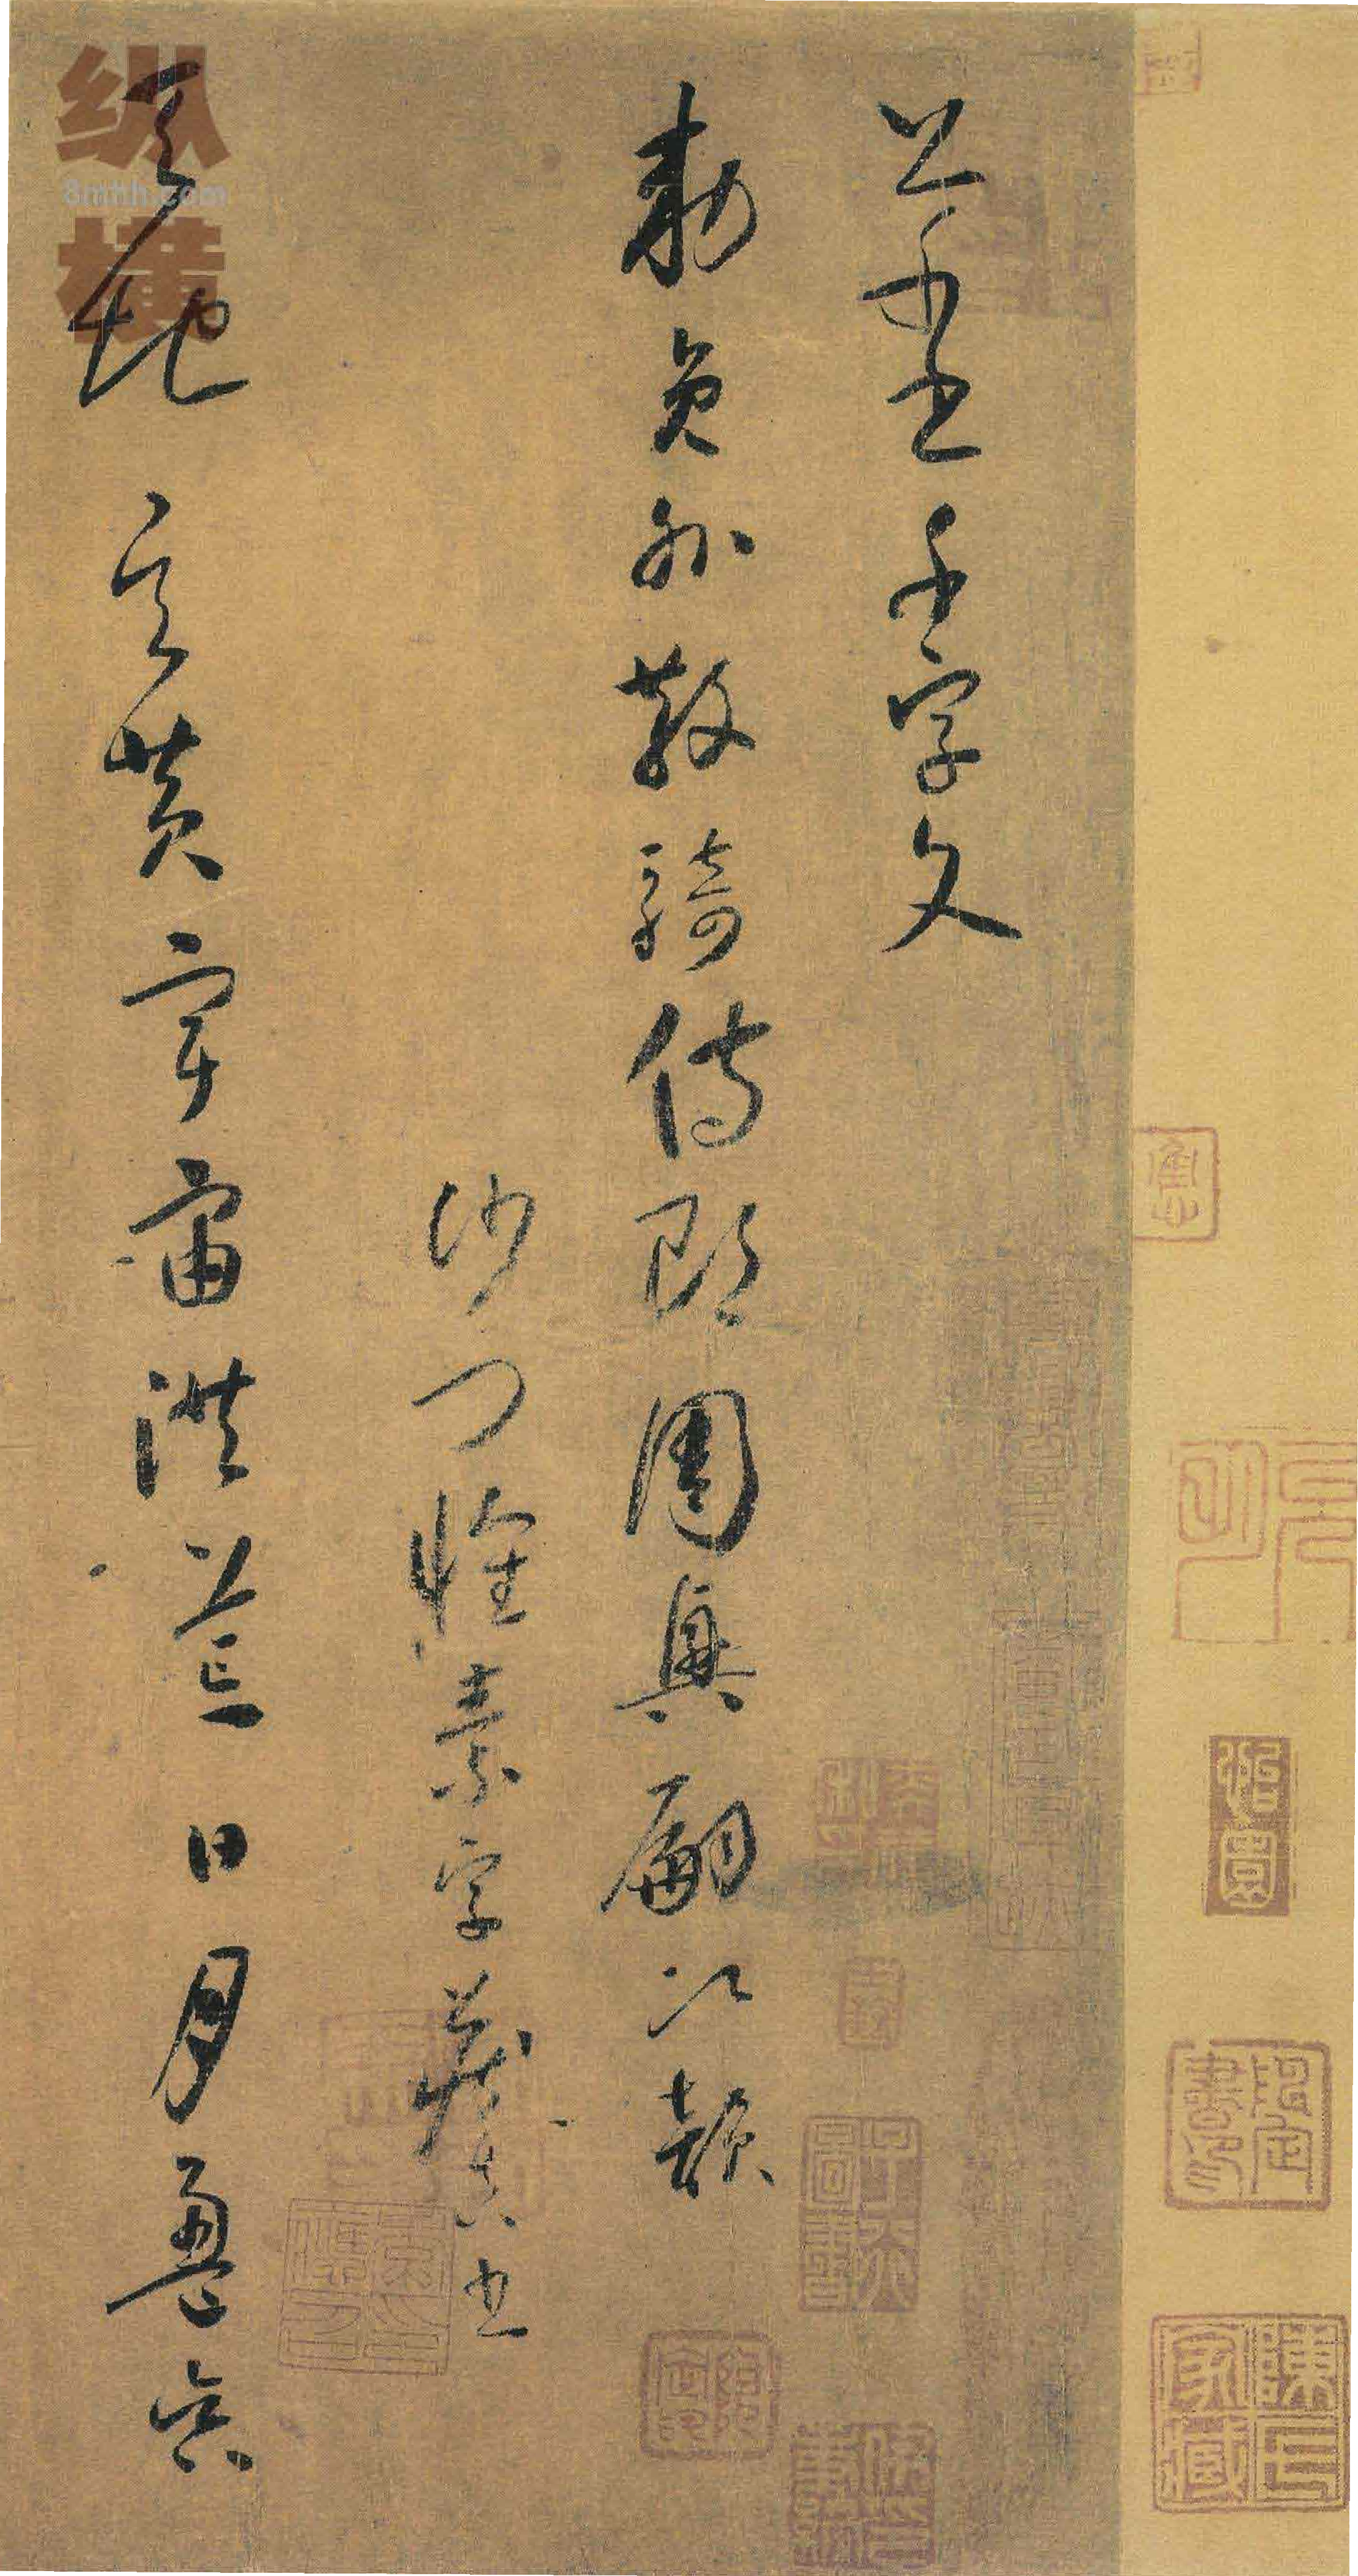 草書千字文
勅員外散騎侍郎周興嗣次韻
沙門懷素字藏真書
天地玄黃宇宙洪荒日月盈昃
纵横
8mhh.com
陳氏家藏